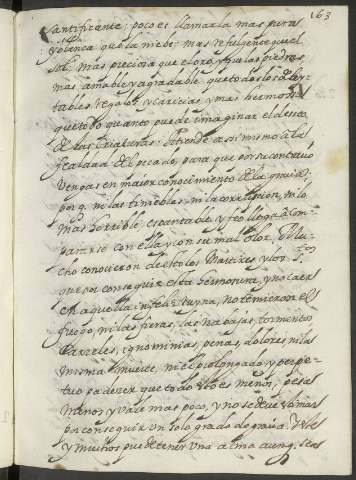 163
santificante; poco es llamarla mas pura
y blanca que la niebe: mas refulgente que el
sol: mas preciosa que el oro, y que las piedras
mas amable y agradable que todos los
tables regalos, y caricias y mas hermosa
que todo quanto puede imaginar el deseo
de las criaturas. Atiende a si mismo a la
fealdad del pecado, para que por su contrario
vengas en maior conocimiento de la gracia;
por q. ni las tinieblas, ni la corrupcion, ni lo
mas horrible, espantable y feo llega a com-
pararse con ella, y con su mal olor. Mu-
cho conocieron de esto los Martires y los S.tos
que por conseguir esta hermosura, y no caer
en aquella infeliz ruyna, no temieron el
fuego, ni las fieras, las nabajas, tormentos
carzeles, ignominias, penas, dolores, ni la
misma muerte, ni el prolongado y perpe-
tuo padezer que todo esto es menos, pesa
menos y vale mas poco, y no se debe estimar
por conseguir un solo grado de gracia. Y este
y muchos puede tener una alma aunq. sea